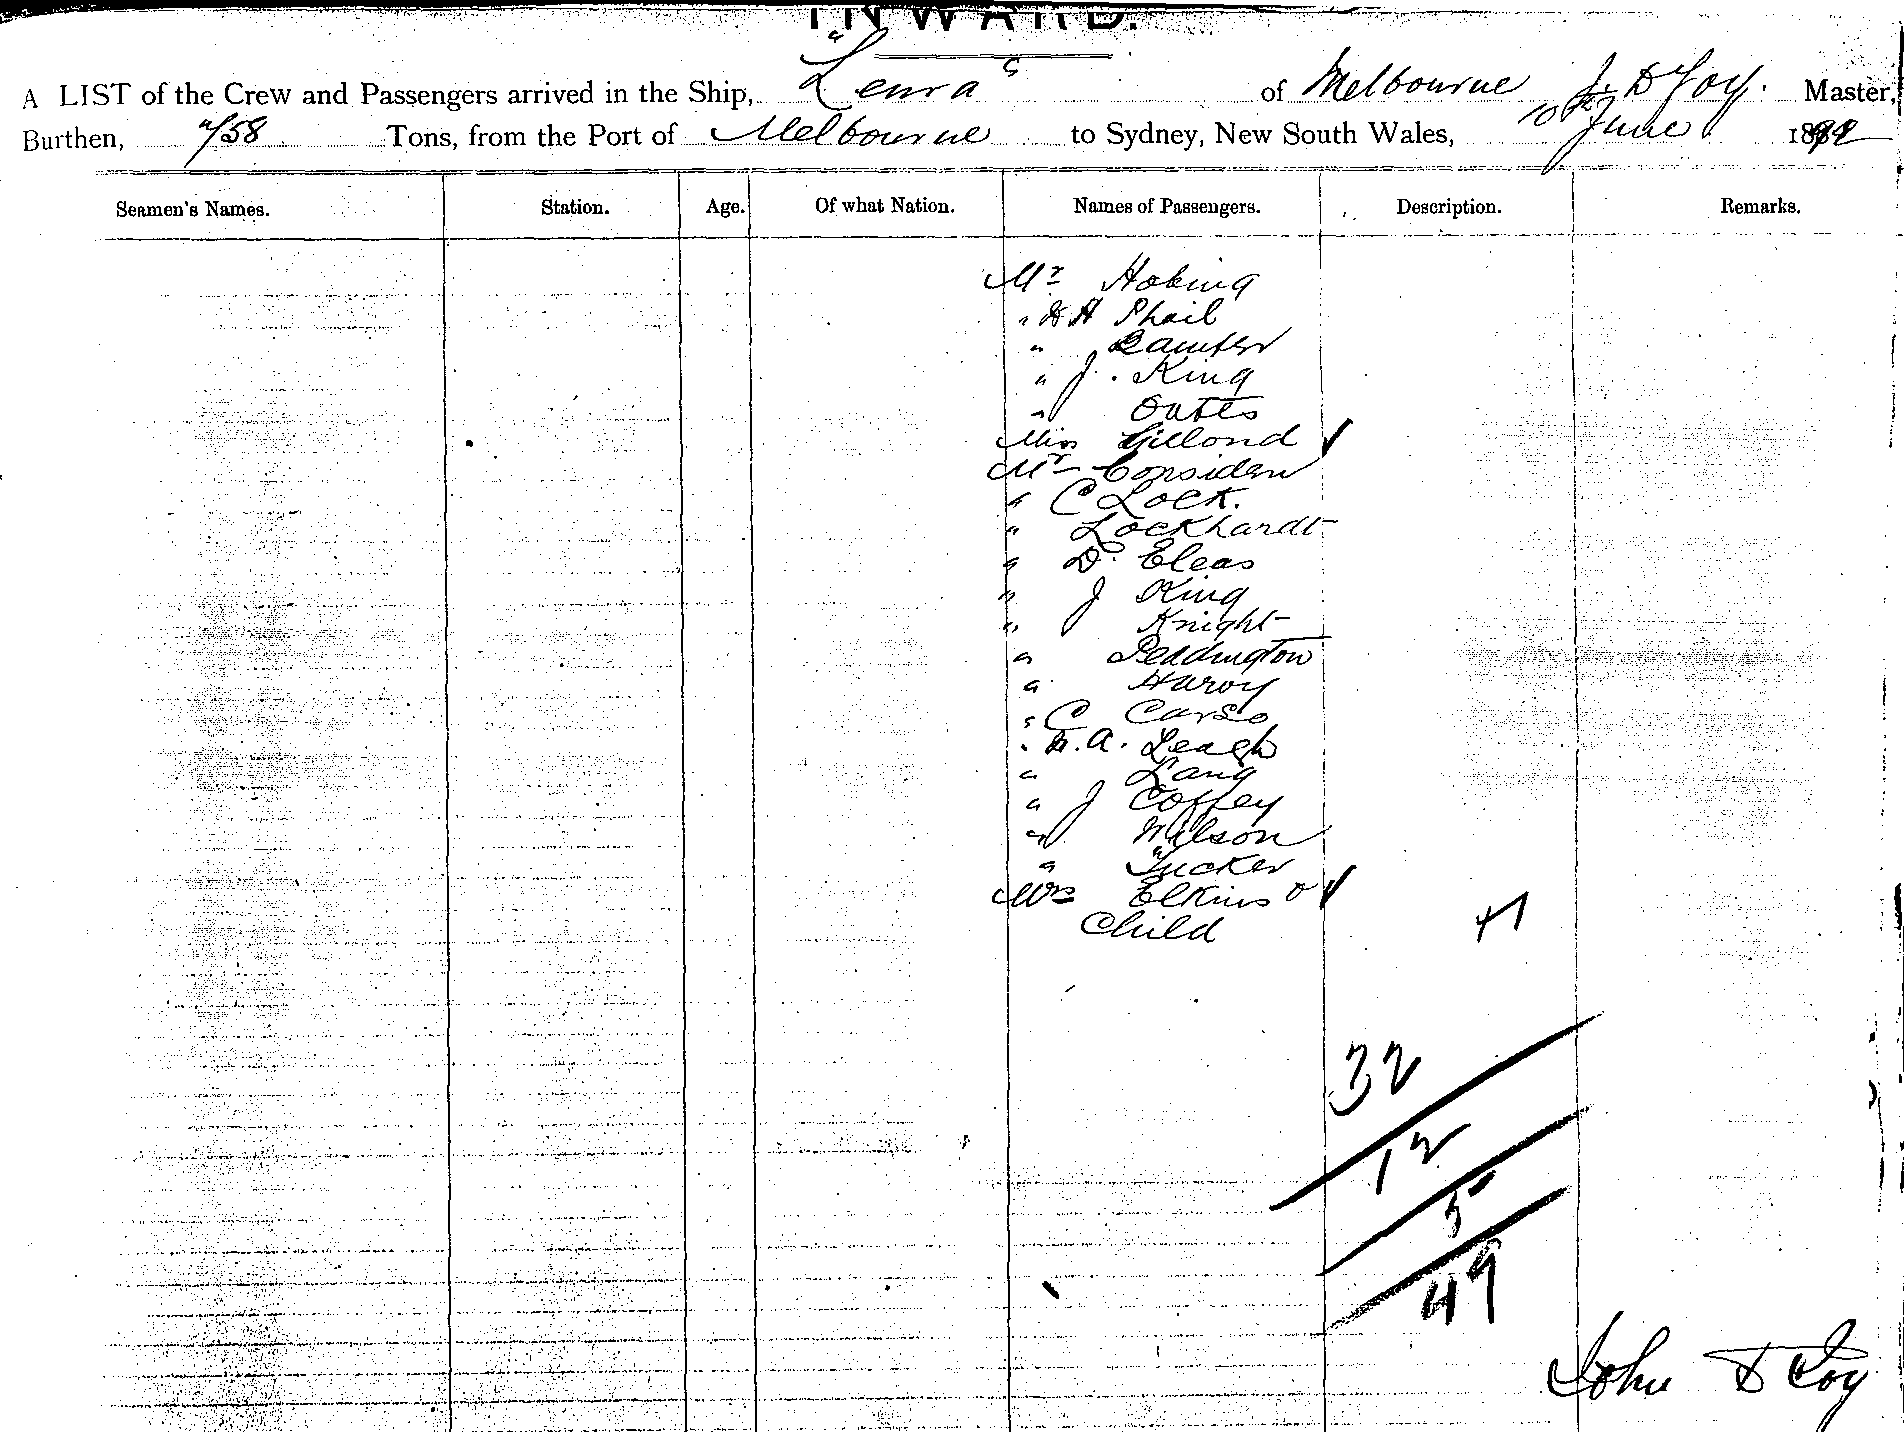 INWARD.
A LIST of the Crew and Passengers arrived in the Ship, "Leura" of Melbourne J. D Joy. Master,
Burthen, Tons, from the Port of Melbourne to Sydney, New South Wales, 10th June 1892
Seamen's Names. Station. Age. Of what Nation. Names of Passengers. Description. Remarks.
Mr Hobing
" D H Phail
"
" J. King
" Oates
Miss Gillond
Mr Considen
" C Lock.
" Lockhardt
" D. Eleas
" J King
" Knight
" Peddington
" Harvy
" C Carso
" A. Leagh
" Lang
" J Coffey
" Wilson
" Tucker
Mrs Elkins &
Child
32
12
5
49
John D Joy